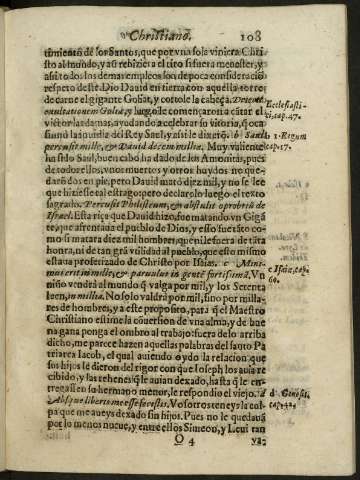 Christiano. 108
timiento de los Santos, que por vna sola viniera Chri
sto al mundo, y aũ rehiziera el tiro si fuera menester, y
assi todos los demas empleos son de poca consideraciõ
respeto deste Dio Dauid en tierra con aquella torre
de carne el gigante Goliat, y cortole la cabeça.
luego le començaron a cãtar el
victor las damas, ayudando a celebrar su vitoria,
del Rey Saul, y assi le dixerõ. b Saul
percussit mille, & Dauid decem millia. Muy valiente
ha sido Saul, buen cabo ha dado de los Amonitas, pues
de todos ellos, vnos muertos y otros huydos no que-
darõ dos en pie, pero Dauid matò diez mil, y no se lee
que hiziesse tal estrago, pero declarelo luego el texto
sagrado. Percussit Philisteum, & abstulit opprobriũ de
Israel. Esta riça que Dauid hizo, fue matando vn Gigã
te, que afrentaua el pueblo de Dios, y esso fue tãto co-
mo si matara diez mil hombres, que ni le fuera de tãta
honra, ni de tan grã vtilidad al pueblo, que esso mismo
estaua profetizado de Christo por Isaias. c Mini-
mus erit in mille, & paruulus in gentẽ fortissimã. Vn
niño vendrà al mundo q̃ valga por mil, y los Setenta
leen, in millia. No solo valdrà por mil, sino por milla-
res de hombres, y a este proposito, para q̃ el Maestro
Christiano estime la cõuersion de vna alma, y de bue
na gana ponga el ombro al trabajo: fuera de lo arriba
dicho, me parece hazen aquellas palabras del santo Pa
triarca Iacob, el qual auiendo oydo la relacion que
sus hijos le dieron del rigor con que Ioseph los auia re
cibido, y las rehenes q̃ le auian dexado, hasta q̃ le en-
tregassen su hermano menor, le respondio el viejo. d
Absque liberis me esse fecistis. Vosotros teneys la cul-
pa que me aueys dexado sin hijos. Pues no le quedauã
por lo menos nueue, y entre ellos Simeon, y Leui tan
O 4
Ecclesiasti-
ci, cap. 47.
1. Regum
cap. 17.
c Isaiæ, cap.
60.
d Genesis,
cap. 42.